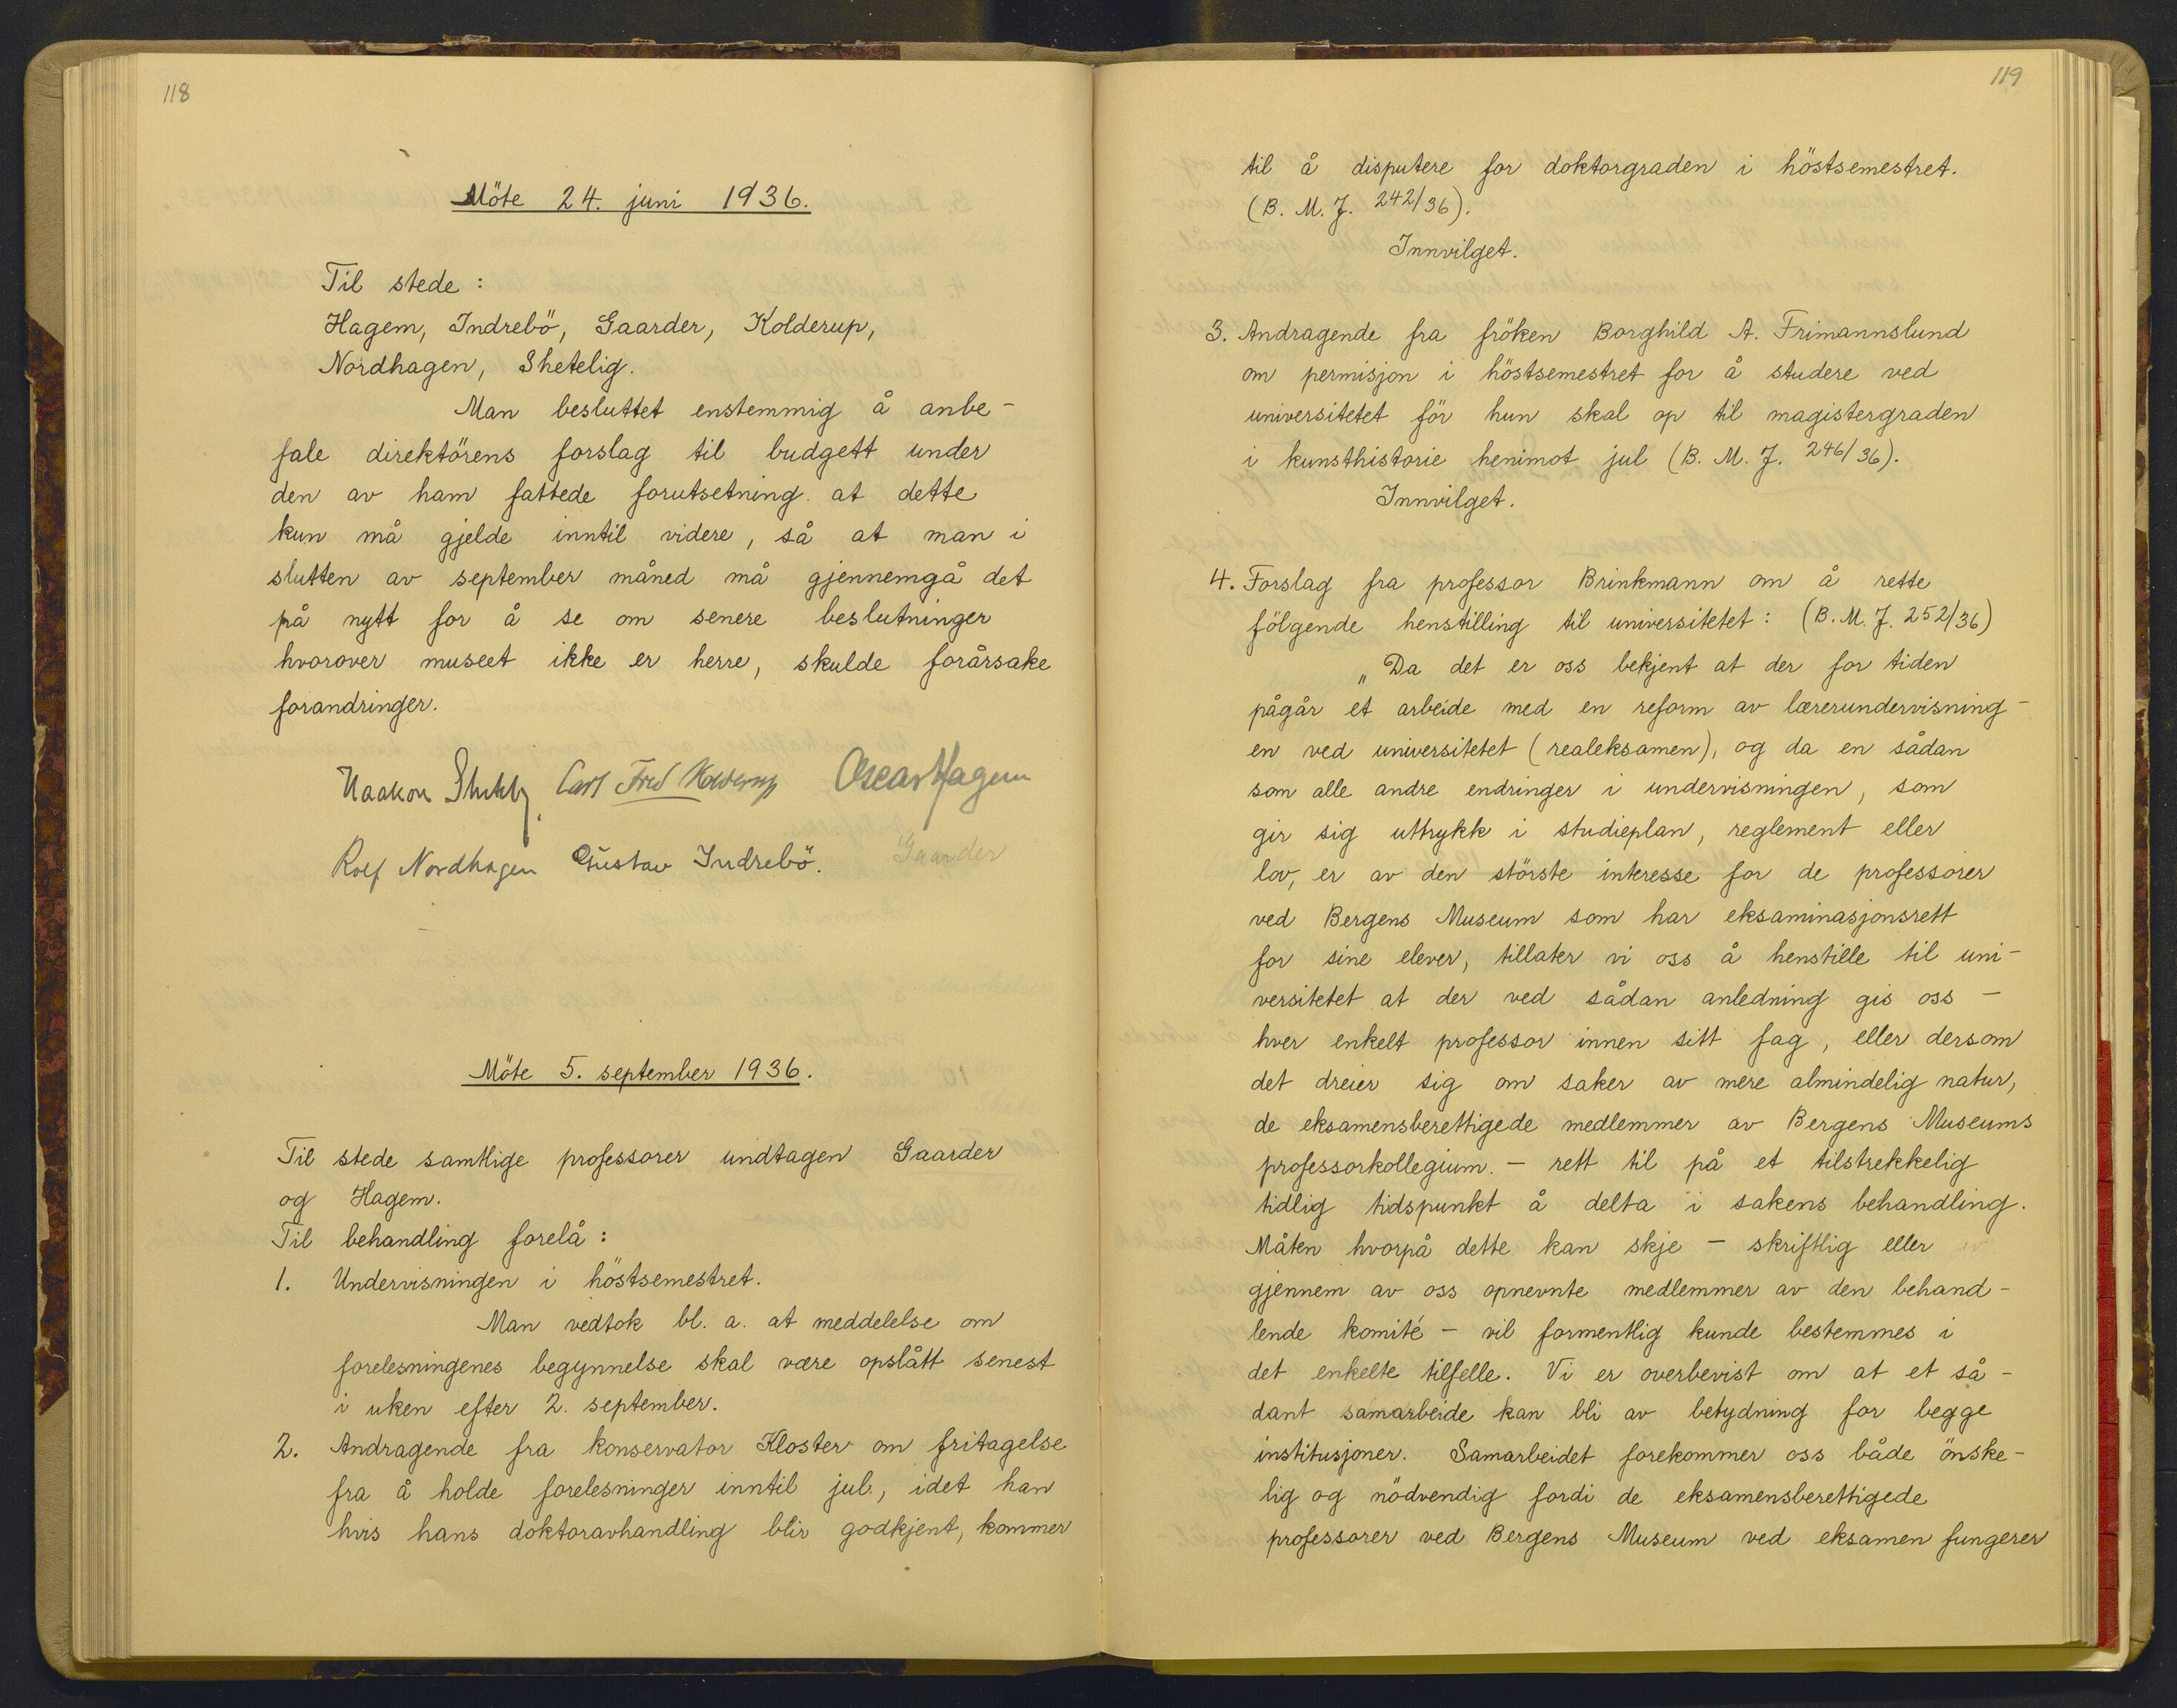 118
Möte 24. juni 1936.
Til stede :
Hagem, Indrebö, Gaarder, Kolderup,
Nordhagen, Shetelig.
Man besluttet enstemmig å anbe-
fale direktörens forslag til budgett under
den av ham fattede forutsetning at dette
kun må gjelde inntil videre, så at man i
slutten av september måned må gjennemgå det
på nytt for å se om senere beslutninger
hvorover museet ikke er herre, skulde forårsake
forandringer.
Haakon Shetelig Carl Fred Kolderup Oscar Hagem
Rolf Nordhagen Gustav Indrebö. Gaarder
Möte 5. september 1936.
Til stede samtlige professorer undtagen Gaarder
og Hagem.
Til behandling forelå :
1. Undervisningen i höstsemestret.
Man vedtok bl. a. at meddelelse om
forelesningenes begynnelse skal være opslått senest
i uken efter 2. september.
2. Andragende fra konservator Kloster om fritagelse
fra å holde forelesninger inntil jul, idet han
hvis hans doktoravhandling blir godkjent, kommer
119
til å disputere for doktorgraden i höstsemestret.
(B. M. J. 242/36).
Innvilget.
3. Andragende fra fröken Borghild A. Frimannslund
om permisjon i höstsemestret for å studere ved
universitetet för hun skal op til magistergraden
i kunsthistorie henimot jul (B. M. J. 246/36).
Innvilget.
4. Forslag fra professor Brinkmann om å rette
fölgende henstilling til universitetet : (B. M. J. 252/36)
„Da det er oss bekjent at der for tiden
pågår et arbeide med en reform av lærerundervisning-
en ved universitetet (realeksamen), og da en sådan
som alle andre endringer i undervisningen, som
gir sig uttrykk i studieplan, reglement eller
lov, er av den störste interesse for de professorer
ved Bergens Museum som har eksaminasjonsrett
for sine elever, tillater vi oss å henstille til uni-
versitetet at der ved sådan anledning gis oss –
hver enkelt professor innen sitt fag, eller dersom
det dreier sig om saker av mere almindelig natur,
de eksamensberettigede medlemmer av Bergens Museums
professorkollegium. – rett til på et tilstrekkelig
tidlig tidspunkt å delta i sakens behandling.
Måten hvorpå dette kan skje – skriftlig eller
gjennem av oss opnevnte medlemmer av den behand-
lende komité – vil formentlig kunde bestemmes i
det enkelte tilfelle. Vi er overbevist om at et så-
dant samarbeide kan bli av betydning for begge
institusjoner. Samarbeidet forekommer oss både önske-
lig og nödvendig fordi de eksamensberettigede
professorer ved Bergens Museum ved eksamen fungerer